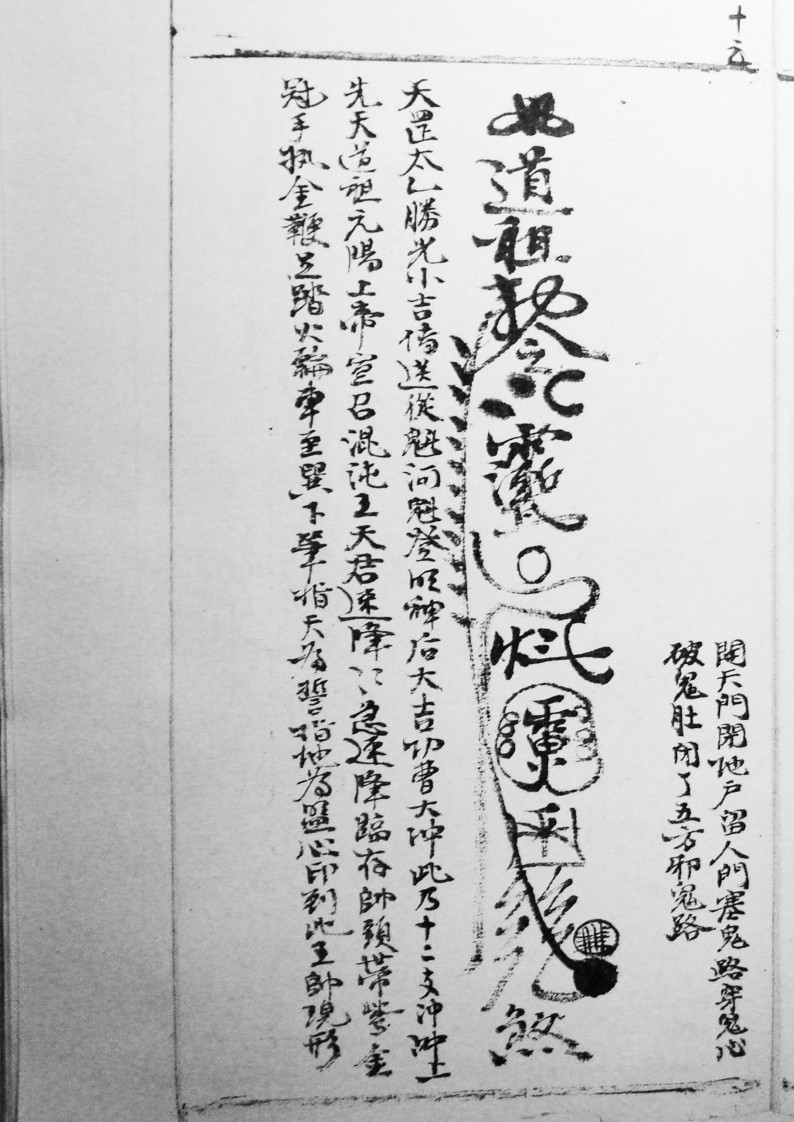 十六
開天門閉地户留人門塞鬼路穿鬼心
破鬼肚閉了五方邪鬼路
道祖勅令
煞
天罡太乙勝光小吉傳送從魁河魁登明神后大吉功曹大冲此乃十二支冲冲上
先天道祖元陽上帝宣召混沌王天君速降〻急速降臨存帥頭带紫金
冠手执金鞭足踏火輪車至巽下筆指天為誓指地為盟心印到此王帥現形